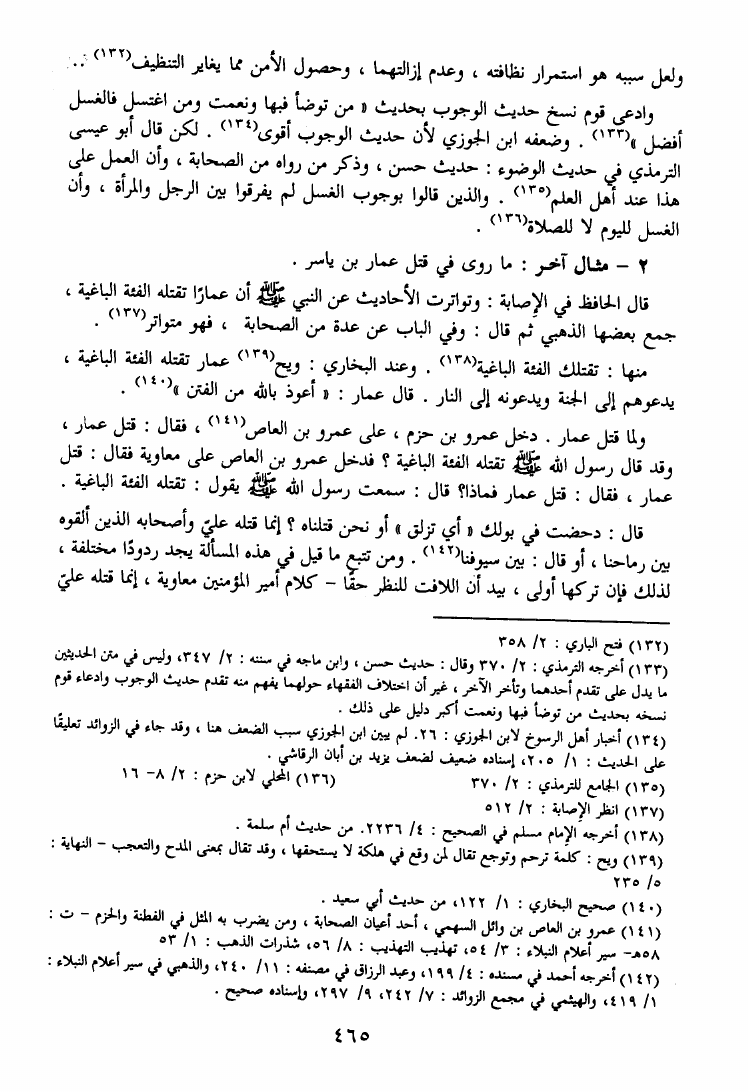 ولعل سببه هو استمرار نظافته ، وعدم إزالتهما ، وحصول الأمن مما يغاير التنظيف(١٣٢) ..
وادعى قوم نسخ حديث الوجوب بحديث « من توضأ فبها ونعمت ومن اغتسل فالغسل
أفضل »(١٣٣) . وضعفه ابن الجوزي لأن حديث الوجوب أقوى(١٣٤) . لكن قال أبو عيسى
الترمذي في حديث الوضوء : حديث حسن ، وذكر من رواه من الصحابة ، وأن العمل على
هذا عند أهل العلم(١٣٥) . والذين قالوا بوجوب الغسل لم يفرقوا بين الرجل والمرأة ، وأن
الغسل لليوم لا للصلاة(١٣٦) .
٢ – مثال آخر : ما روى في قتل عمار بن ياسر .
قال الحافظ في الإصابة : وتواترت الأحاديث عن النبي ﷺ أن عمارًا تقتله الفئة الباغية ،
جمع بعضها الذهبي ثم قال : وفي الباب عن عدة من الصحابة ، فهو متواتر(١٣٧) .
منها : تقتلك الفئة الباغية(١٣٨) . وعند البخاري : ويح(١٣٩) عمار تقتله الفئة الباغية ،
يدعوهم إلى الجنة ويدعونه إلى النار . قال عمار : « أعوذ بالله من الفتن »(١٤٠) .
ولما قتل عمار . دخل عمرو بن حزم ، على عمرو بن العاص(١٤١) ، فقال : قتل عمار ،
وقد قال رسول الله ﷺ تقتله الفئة الباغية ؟ فدخل عمرو بن العاص على معاوية فقال : قتل
عمار ، فقال : قتل عمار فماذا؟ قال : سمعت رسول الله ﷺ يقول : تقتله الفئة الباغية .
قال : دحضت في بولك « أي تزلق » أو نحن قتلناه ؟ إنما قتله عليّ وأصحابه الذين ألقوه
بين رماحنا ، أو قال : بين سيوفنا(١٤٢) . ومن تتبع ما قيل في هذه المسألة يجد ردودًا مختلفة ،
لذلك فإن تركها أولى ، بيد أن اللافت للنظر حقًا – كلام أمير المؤمنين معاوية ، إنما قتله عليّ
(١٣٢) فتح الباري : ٢/ ٣٥٨
(١٣٣) أخرجه الترمذي : ٢/ ٣٧٠ وقال : حديث حسن ، وابن ماجه في سننه : ٢/ ٣٤٧، وليس في متن الحديثين
ما يدل على تقدم أحدهما وتأخر الآخر ، غير أن اختلاف الفقهاء حولهما يفهم منه تقدم حديث الوجوب وادعاء قوم
نسخه بحديث من توضأ فبها ونعمت أكبر دليل على ذلك .
(١٣٤) أخبار أهل الرسوخ لابن الجوزي : ٢٦. لم يبين ابن الجوزي سبب الضعف هنا ، وقد جاء في الزوائد تعليقًا
على الحديث : ١/ ٢٠٥، إسناده ضعيف لضعف يزيد بن أبان الرقاشي .
(١٣٥) الجامع للترمذي : ٢/ ٣٧٠ (١٣٦) المحلي لابن حزم : ٢/ ٨– ١٦
(١٣٧) انظر الإصابة : ٢/ ٥١٢
(١٣٨) أخرجه الإمام مسلم في الصحيح : ٤/ ٢٢٣٦. من حديث أم سلمة .
(١٣٩) ويح : كلمة ترحم وتوجع تقال لمن وقع في هلكة لا يستحقها ، وقد تقال بمعنى المدح والتعجب – النهاية :
٥/ ٢٣٥
(١٤٠) صحيح البخاري : ١/ ١٢٢، من حديث أبي سعيد .
(١٤١) عمرو بن العاص بن وائل السهمي ، أحد أعيان الصحابة ، ومن يضرب به المثل في الفطنة والحزم – ت :
٥٨هـ– سير أعلام النبلاء : ٣/ ٥٤، تهذيب التهذيب : ٨/ ٥٦، شذرات الذهب : ١/ ٥٣
(١٤٢) أخرجه أحمد في مسنده : ٤/ ١٩٩، وعبد الرزاق في مصنفه : ١١/ ٢٤٠، والذهبي في سير أعلام النبلاء :
١/ ٤١٩، والهيثمي في مجمع الزوائد : ٧/ ٢٤٢، ٩/ ٢٩٧، وإسناده صحيح .
٤٦٥